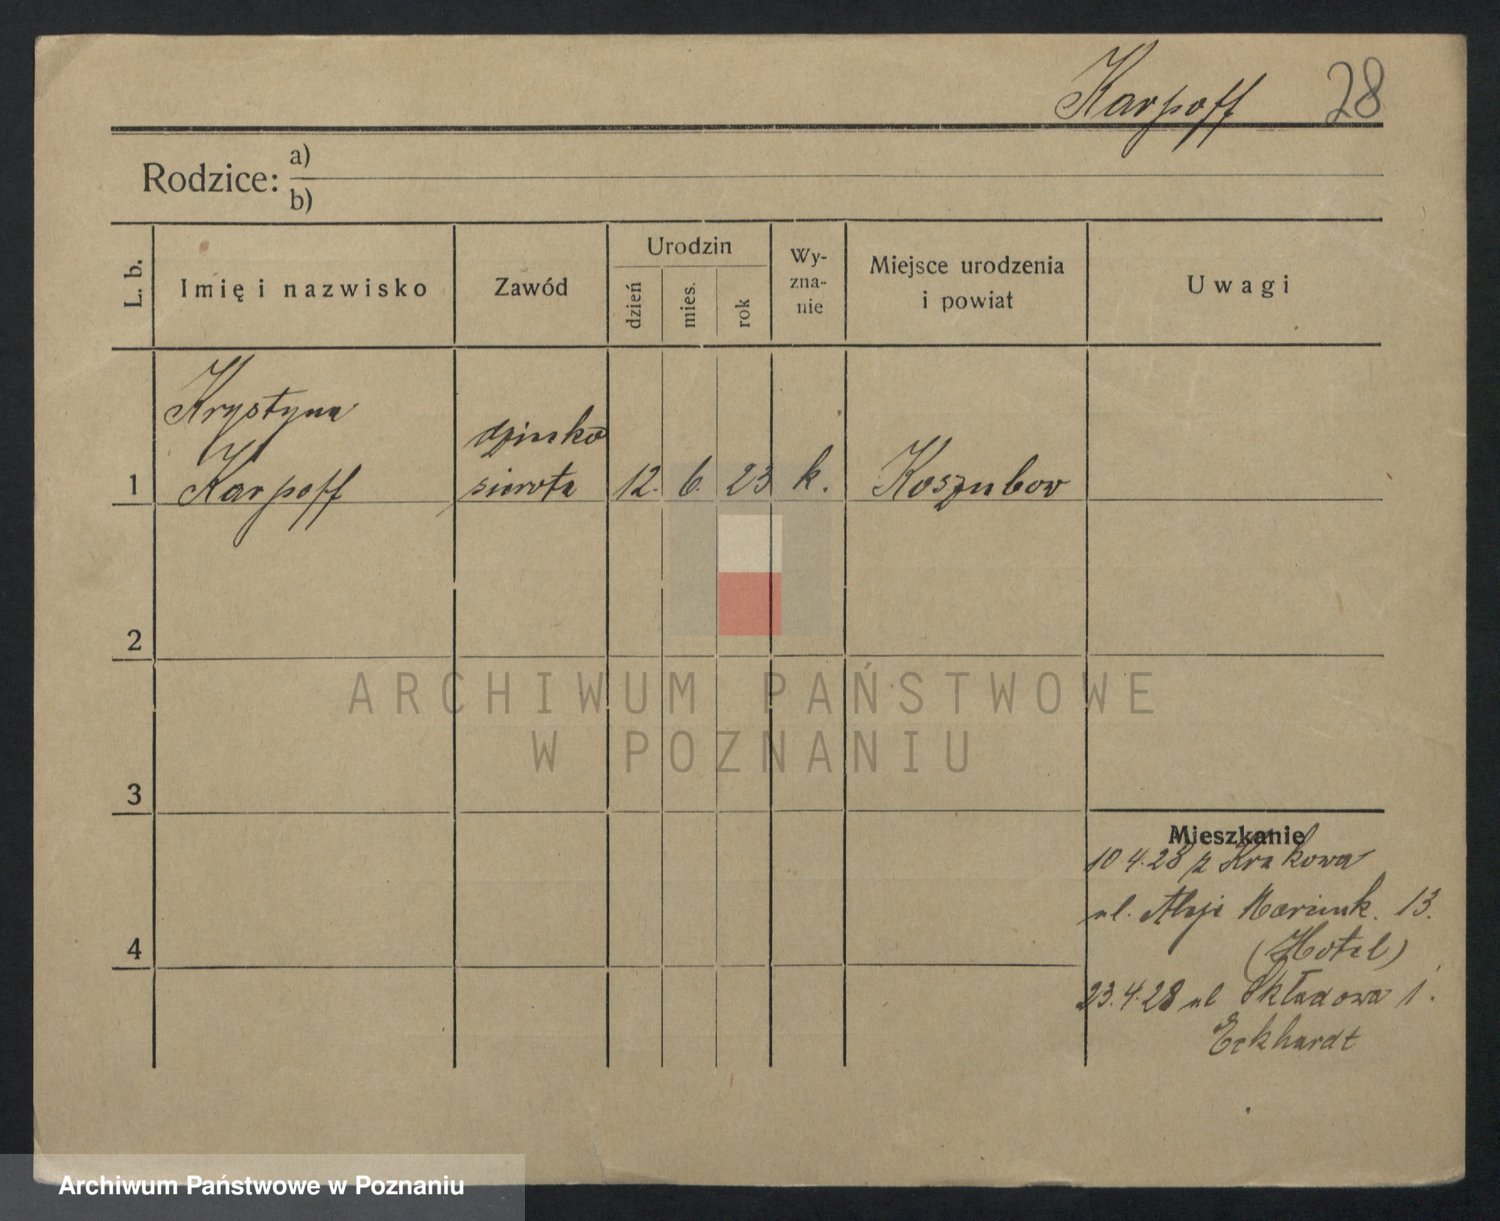 Karpoff 28
Rodzice: a)
b)
L. b.
Imię i nazwisko
Zawód
Urodzin
dzień
mies.
rok
Wy-
zna-
nie
Miejsce urodzenia
i powiat
Uwagi
Krystyna
Karpoff
sierota
1 12. 6. 23 k. Koszubow
2
3
4
Mieszkanie
10.4.28 z Krakowa
ul. Aleje Marcink. 13.
(Hotel)
23.4.28 ul Składowa 1.
Eckhardt
ARCHIWUM PAŃSTWOWE
W POZNANIU
Archiwum Państwowe w Poznaniu